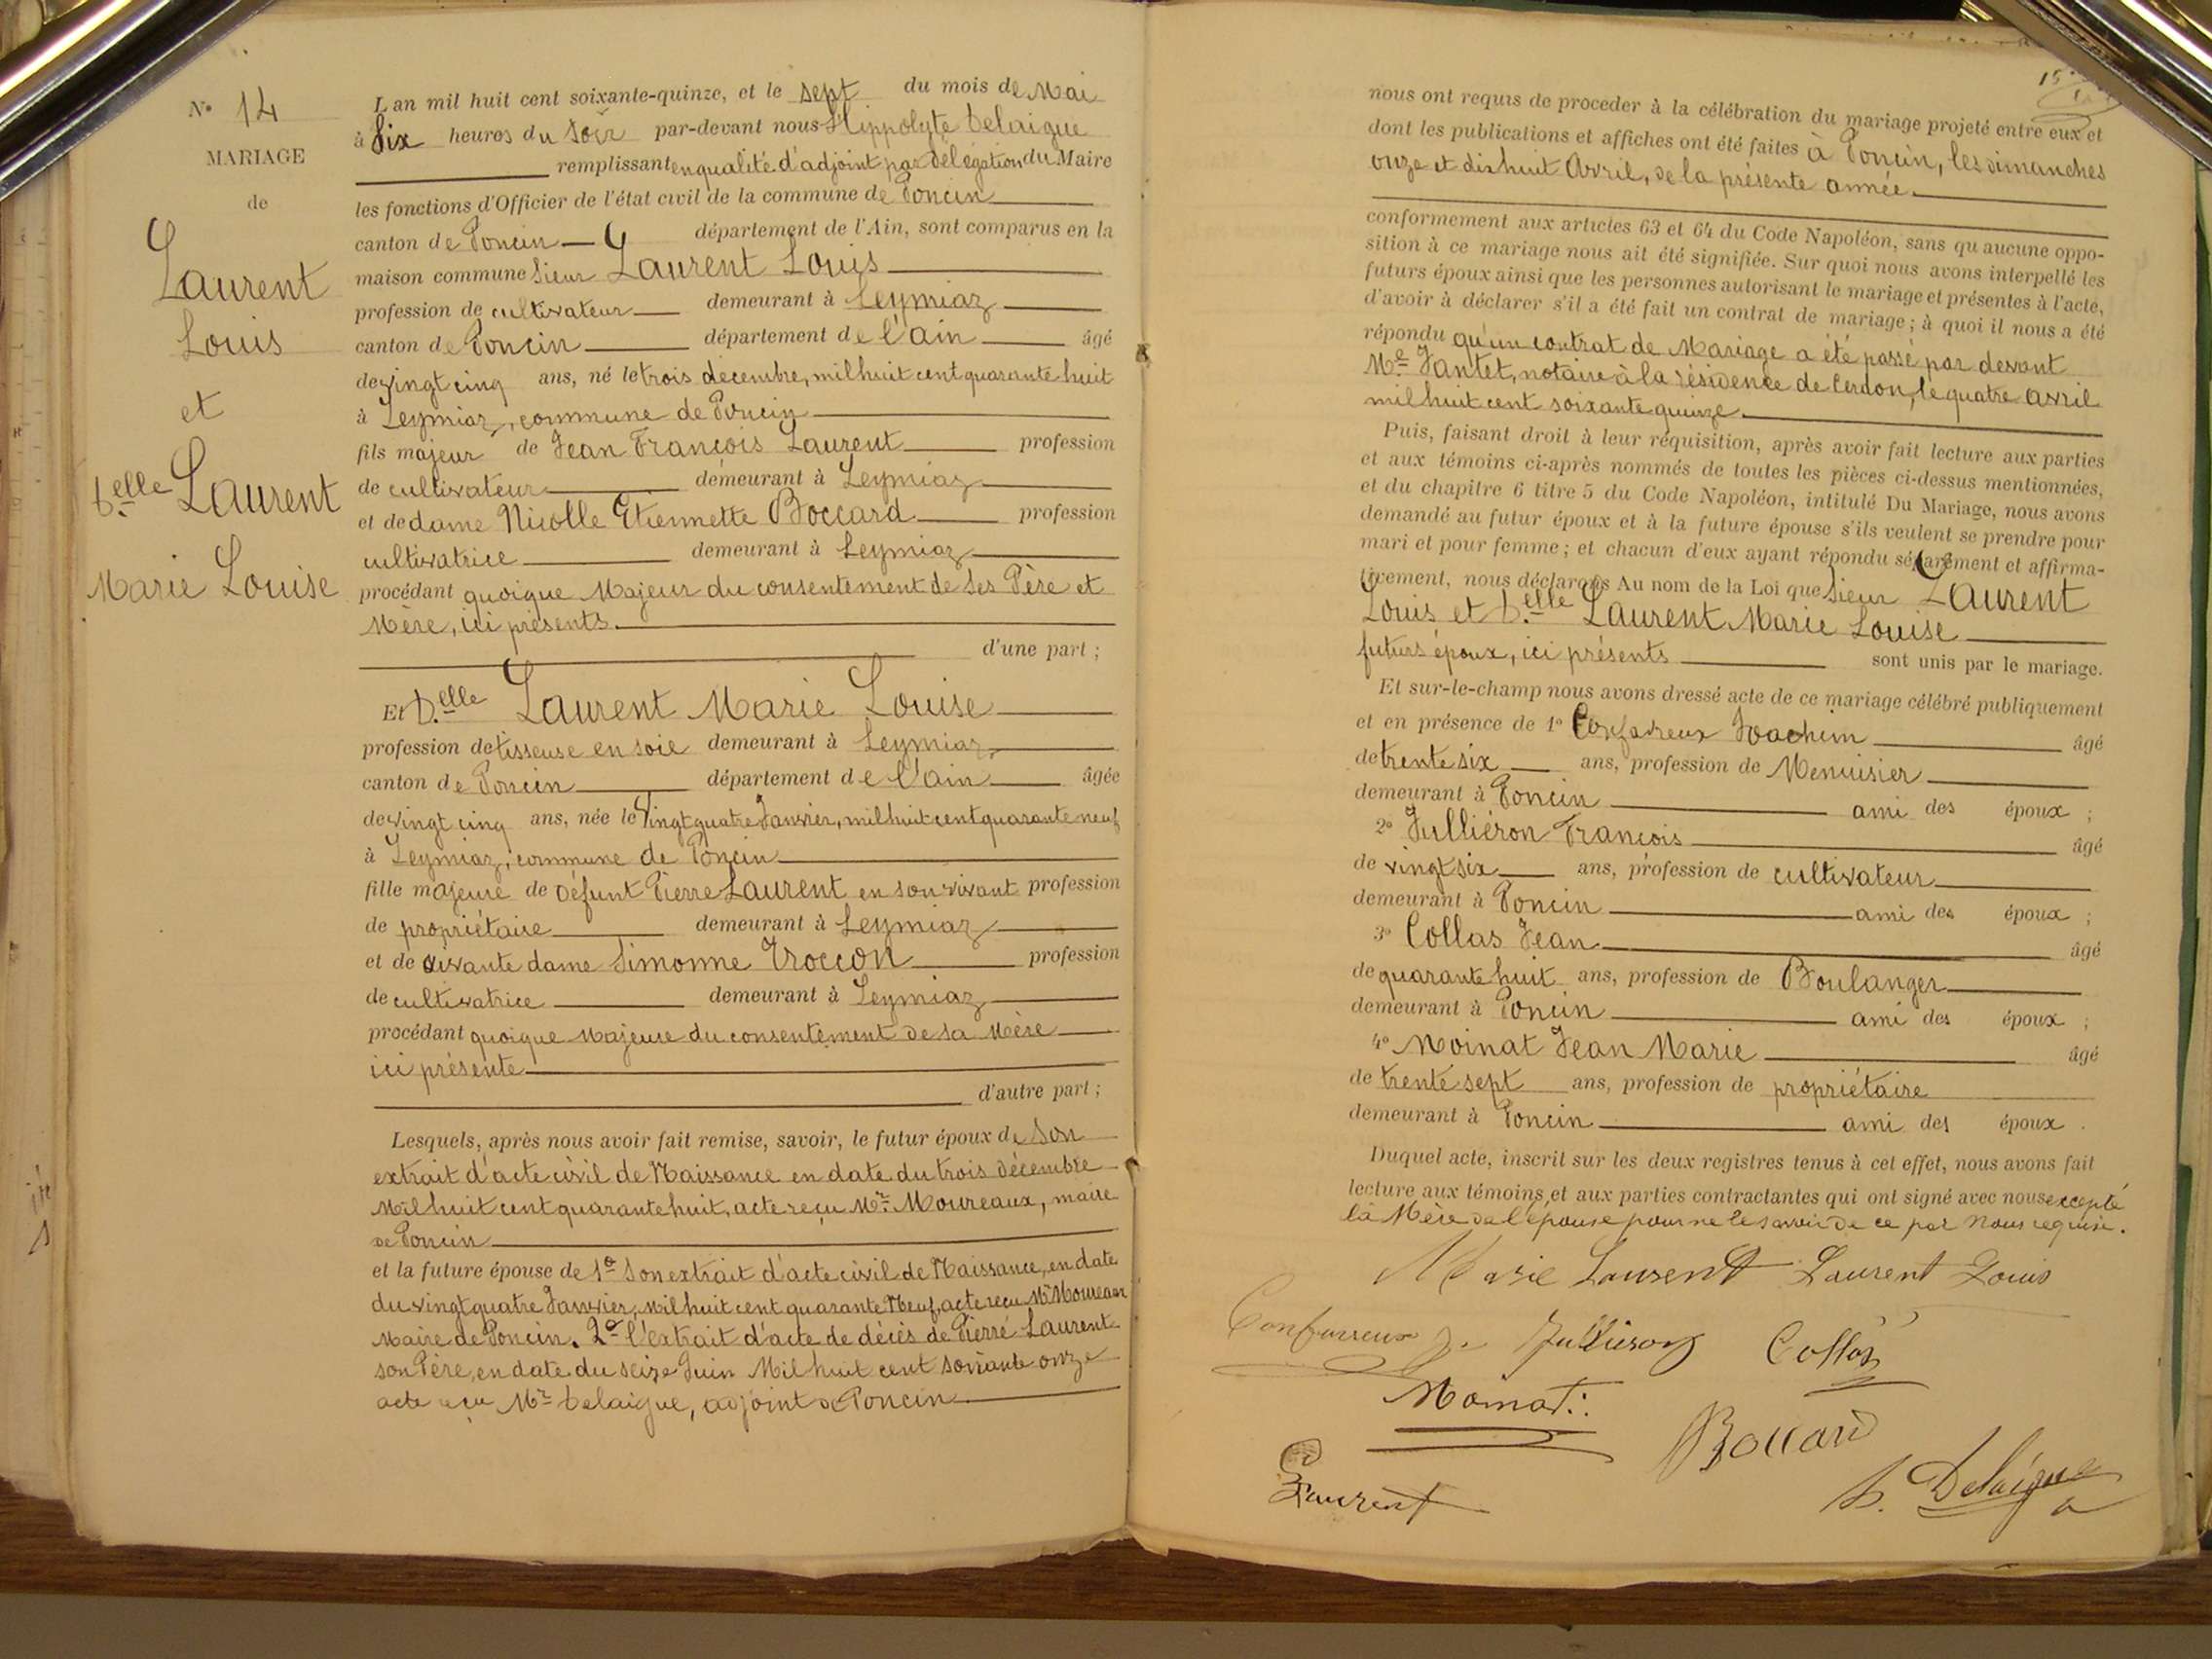 N° 14
MARIAGE
de
Laurent
Louis
et
D.elle Laurent
Marie Louise
L'an mil huit cent soixante-quinze, et le sept du mois de Mai
à Six heures du soir par-devant nous Hippolyte Delaigue
remplissant en qualité d'adjoint par délégation du Maire
les fonctions d'Officier de l'état civil de la commune de Poncin
canton de Poncin département de l'Ain, sont comparus en la
maison commune Sieur Laurent Louis
profession de cultivateur demeurant à Leymiaz
canton de Poncin département de l'ain âgé
de vingt cinq ans, né le trois décembre, mil huit cent quarante huit
à Leymiaz, commune de Poncin
fils majeur de Jean François Laurent profession
de cultivateur demeurant à Leymiaz
et de dame Nicolle Etiennette Boccard profession
cultivatrice demeurant à Leymiaz
procédant quoique Majeur du consentement de ses Père et
Mère, ici présents.
d'une part ;
Et D.elle Laurent Marie Louise
profession de tisseuse en soie demeurant à Leymiaz
canton de Poncin département de l'ain âgée
de vingt cinq ans, née le Vingt quatre Janvier, mil huit cent quarante neuf
à Leymiaz, commune de Poncin
fille majeure de défunt Pierre Laurent en son vivant profession
de propriétaire demeurant à Leymiaz
et de vivante dame Simonne Troccon profession
de cultivatrice demeurant à Leymiaz
procédant quoique Majeure du consentement de sa Mère
ici présente
d'autre part ;
Lesquels, après nous avoir fait remise, savoir, le futur époux de son
extrait d'acte civil de Naissance en date du trois décembre
Mil huit cent quarante huit, acte reçu Mr. Moureaux, maire
de Poncin
et la future épouse de 1° son extrait d'acte civil de Naissance, en date
du vingt quatre Janvier, Mil huit cent quarante Neuf, acte reçu Mr Moureaux
Maire de Poncin. 2° l'extrait d'acte de décès de Pierre Laurent
son Père, en date du seize Juin Mil huit cent soixante onze
acte reçu Mr Delaigue, adjoint de Poncin
nous ont requis de proceder à la célébration du mariage projeté entre eux et
dont les publications et affiches ont été faites à Poncin, les dimanches
onze et dix huit Avril, de la présente année.
conformement aux articles 63 et 64 du Code Napoléon, sans qu'aucune oppo-
sition à ce mariage nous ait été signifiée. Sur quoi nous avons interpellé les
futurs époux ainsi que les personnes autorisant le mariage et présentes à l'acte,
d'avoir à déclarer s'il a été fait un contrat de mariage ; à quoi il nous a été
répondu qu'un contrat de Mariage a été passé par devant
Me Jantet, notaire à la résidence de Cerdon, le quatre avril
mil huit cent soixante quinze.
Puis, faisant droit à leur réquisition, après avoir fait lecture aux parties
et aux témoins ci-après nommés de toutes les pièces ci-dessus mentionnées,
et du chapitre 6 titre 5 du Code Napoléon, intitulé Du Mariage, nous avons
demandé au futur époux et à la future épouse s'ils veulent se prendre pour
mari et pour femme ; et chacun d'eux ayant répondu séparément et affirma-
tivement, nous déclarons Au nom de la Loi que Sieur Laurent
Louis et D.elle Laurent Marie Louise
futurs époux, ici présents sont unis par le mariage.
Et sur-le-champ nous avons dressé acte de ce mariage célébré publiquement
et en présence de 1° Joachim âgé
de trente six ans, profession de Menuisier
demeurant à Poncin ami des époux ;
2° Julliéron François âgé
de vingt six ans, profession de cultivateur
demeurant à Poncin ami des époux ;
3° Collas Jean âgé
de quarante huit ans, profession de Boulanger
demeurant à Poncin ami des époux ;
4° Moinat Jean Marie âgé
de trente sept ans, profession de propriétaire
demeurant à Poncin ami des époux .
Duquel acte, inscrit sur les deux registres tenus à cet effet, nous avons fait
lecture aux témoins, et aux parties contractantes qui ont signé avec nous excepté
la Mère de l'épouse pour ne le savoir de ce par Nous requise.
Marie Laurent Laurent Louis
J. Julliéron Collas
Moinat
Boccard
Laurent
h. Delaigue